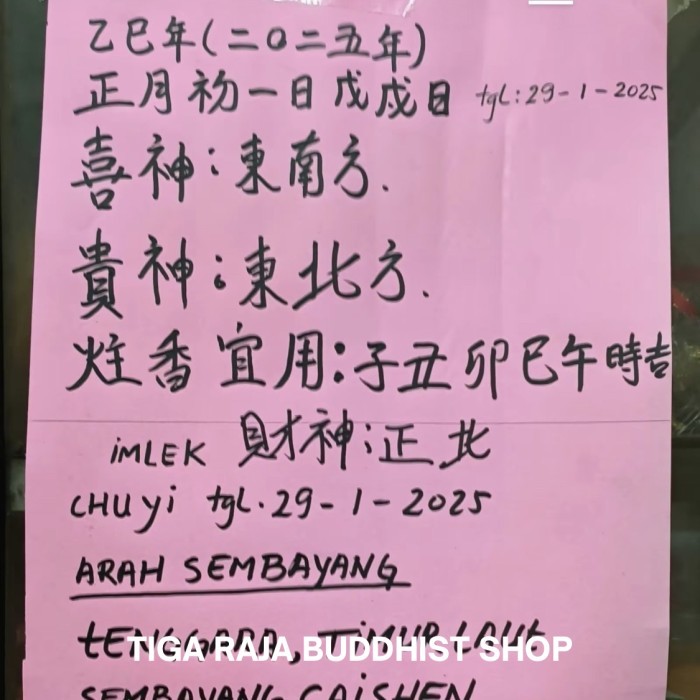 乙巳年(二〇二五年)
正月初一日戊戌日 tgl:29-1-2025
喜神:東南方.
貴神:東北方.
炷香宜用:子丑卯巳午時吉
iMLEK 財神:正北
CHUyi tgl.29-1-2025
ARAH SEMBAYANG
tENGGARA, TiMUR LAUt
TIGA RAJA BUDDHIST SHOP
SEMBAYANG CAiSHEN